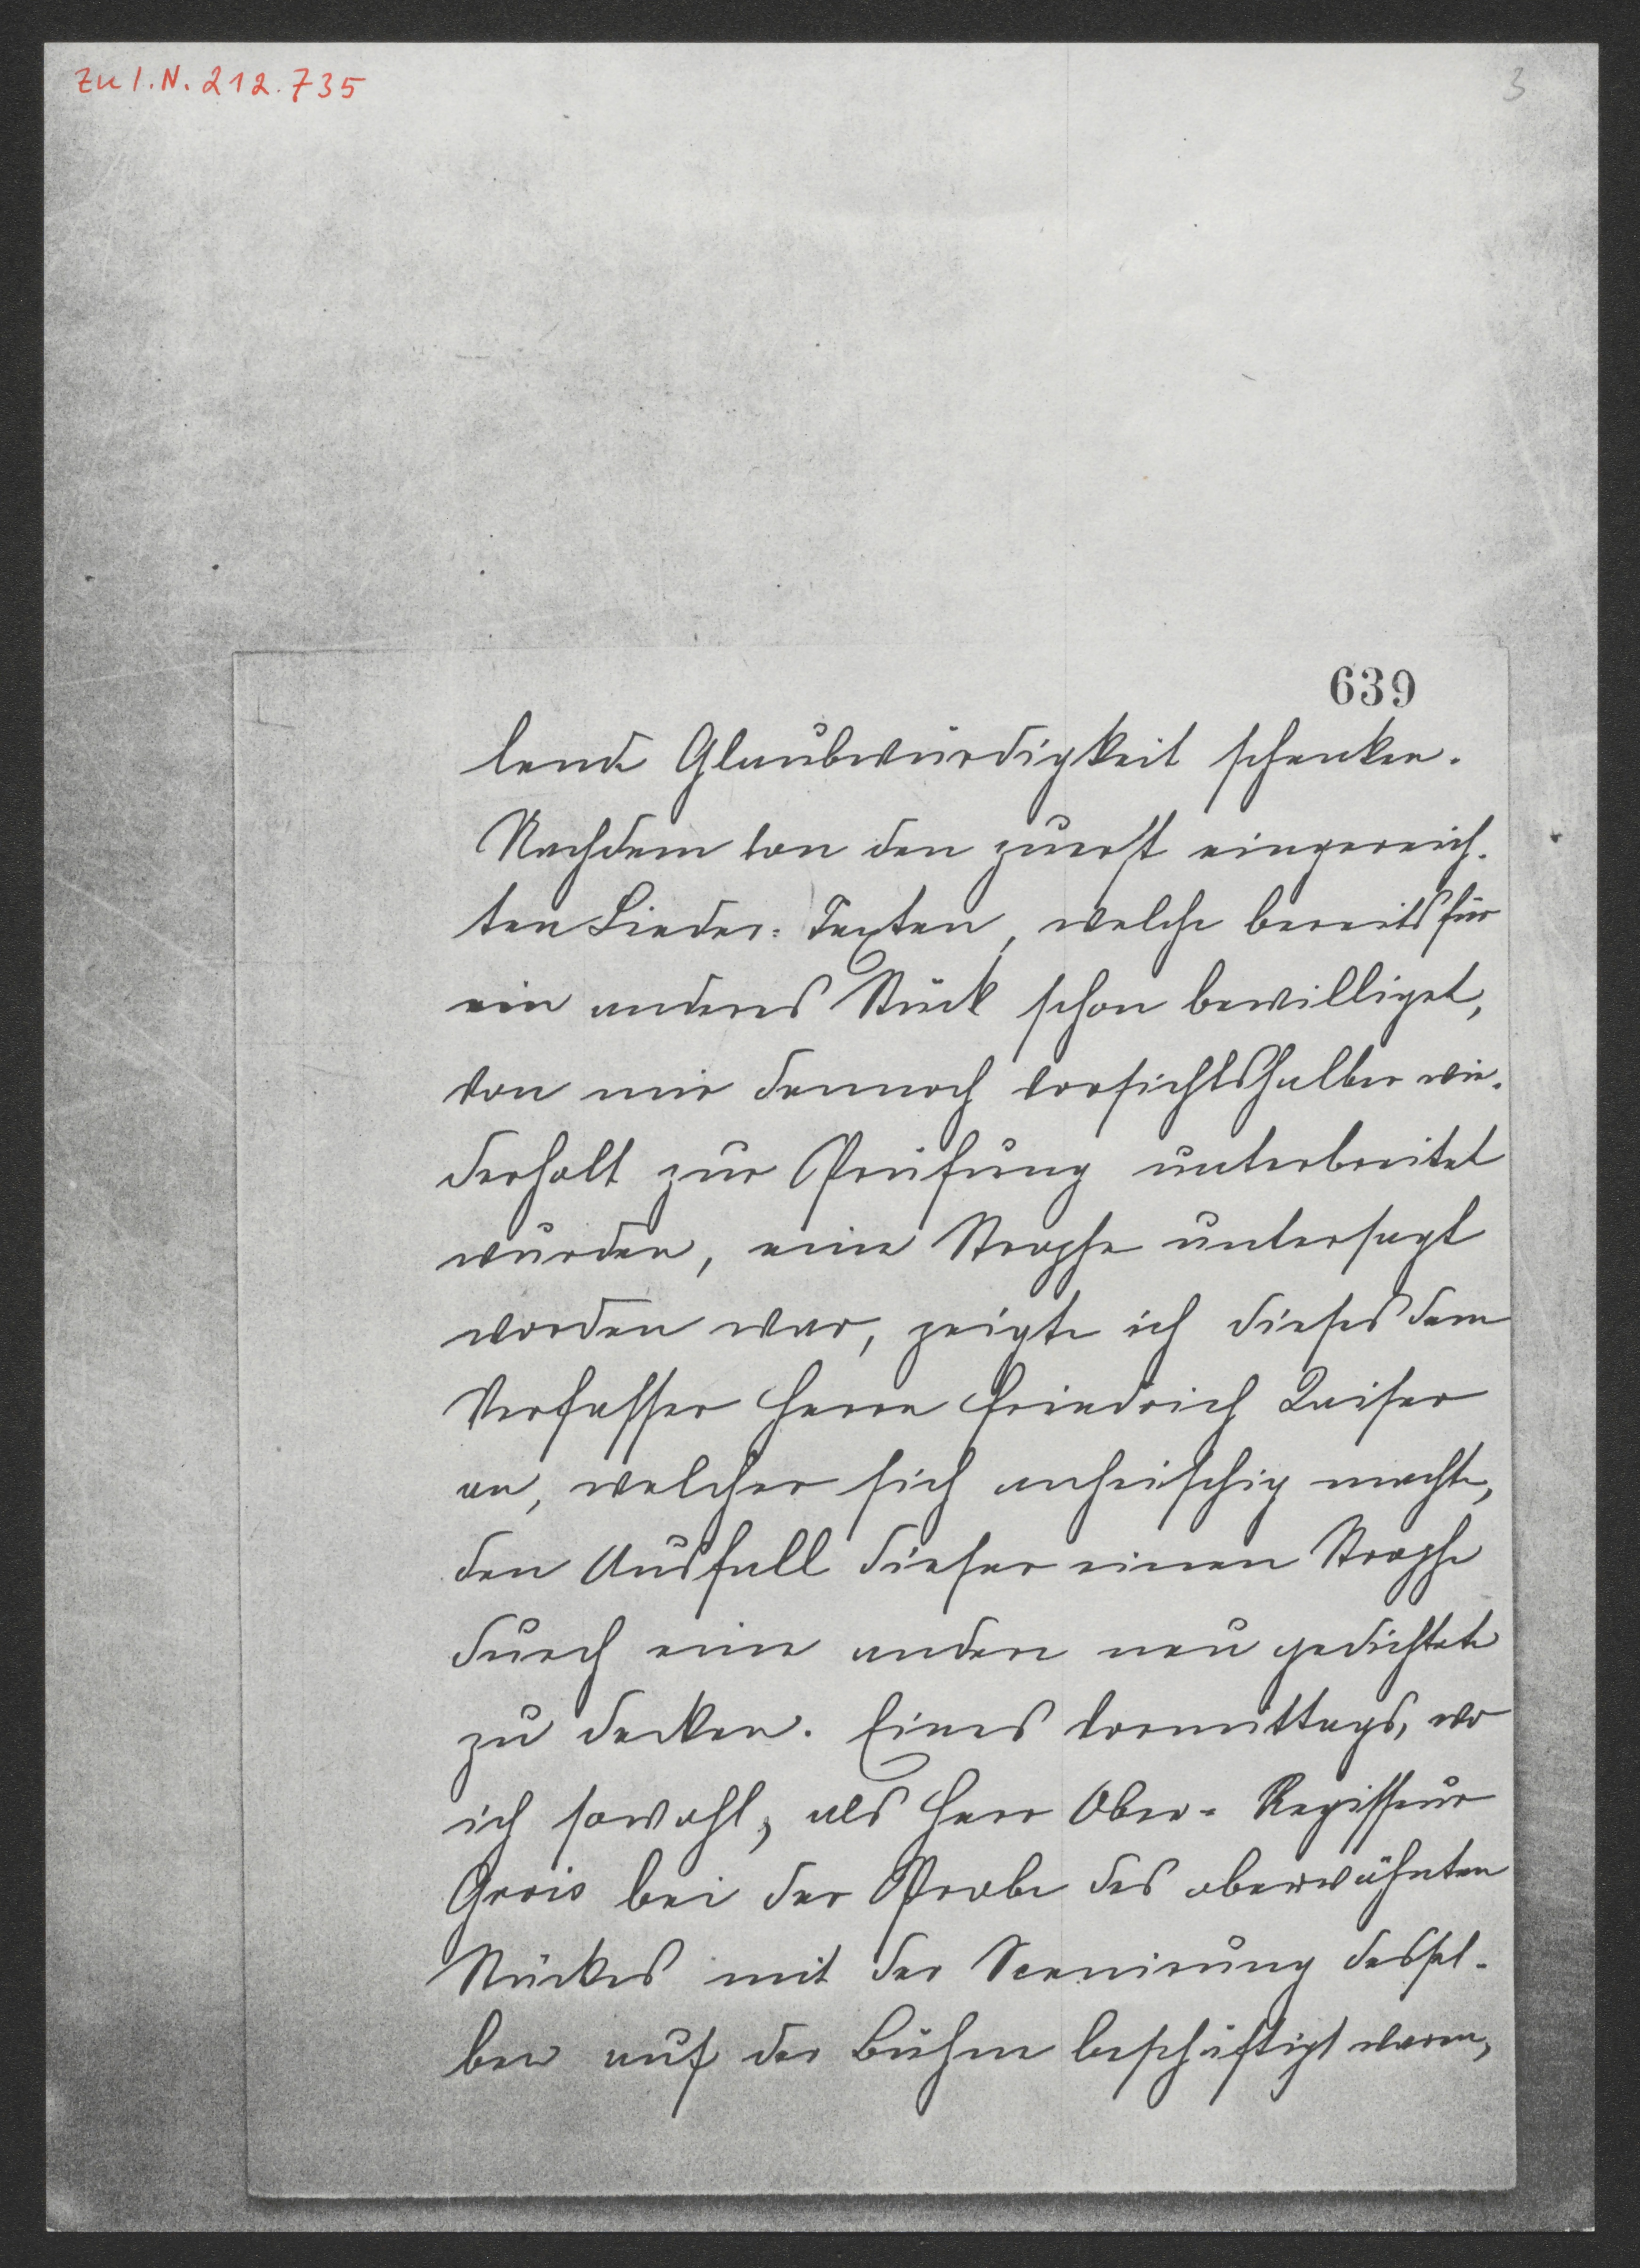 Zu I.N. 212.735
3
639
lende Glaubwürdigkeit schenken.
Nachdem von den zuerst eingereich-
ten Lieder-Texten, welche bereits für
ein anderes Stück schon bewilliget,
von mir dennoch vorsichtshalber wie-
derholt zur Prüfung unterbreitet
wurden, eine Strophe untersagt
worden war, zeigte ich dieses dem
Verfasser Herrn Friedrich Kaiser
an, welcher sich anheischig machte,
den Ausfall dieser einen Strophe
durch eine andere neu gedichtete
zu decken. Eines Vormittags, wo
ich sowohl, als Herr Ober-Regisseur
Grois bei der Probe des oberwähnten
Stückes mit der Scenirung dessel-
ben auf der Bühne beschäftigt waren,